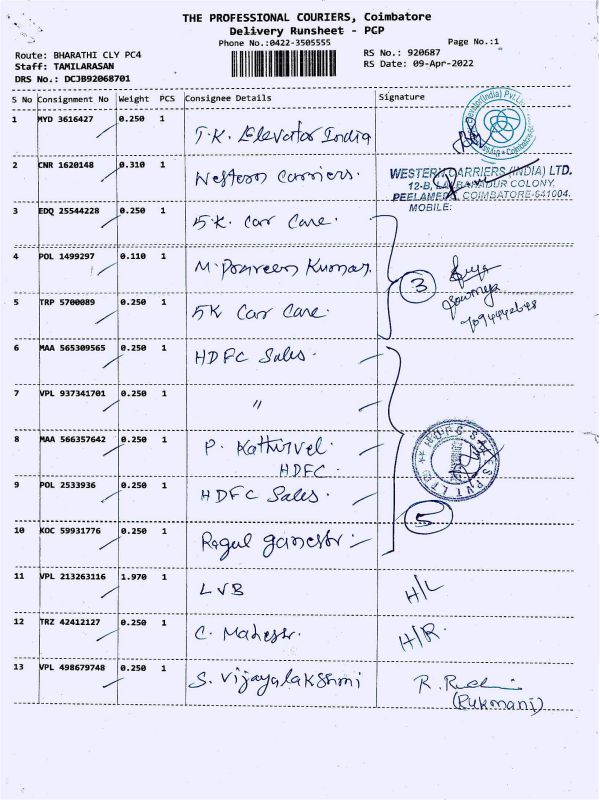 THE PROFESSIONAL COURIERS, Coimbatore
Delivery Runsheet - PCP
Phone No.:0422-3505555
Page No.:1
Route: BHARATHI CLY PC4
RS No.: 920687
Staff: TAMILARASAN
RS Date: 09-Apr-2022
DRS No.: DCJB92068701
S No Consignment No Weight PCS Consignee Details Signature
1 MYD 3616427 0.250 1 T.K. Elevator India
2 CNR 1620148 0.310 1 Western Carriers.
WESTERN CARRIERS (INDIA) LTD.
12-B, COLONY,
PEELAMEDU, COIMBATORE-641004.
MOBILE:
3 EDQ 25544228 0.250 1 5.K. Car Care.
4 POL 1499297 0.110 1 M. Praveen Kumar.
3
Sowmya
5 TRP 5700089 0.250 1 5K Car Care.
6 MAA 565309565 0.250 1 HDFC Sales.
7 VPL 937341701 0.250 1 "
8 MAA 566357642 0.250 1 P. Kathirvel.
HDFC.
HDFC SALES PVT LTD
9 POL 2533936 0.250 1 HDFC Sales.
5
10 KOC 59931776 0.250 1 Ragul ganesh
11 VPL 213263116 1.970 1 LVB H/L
12 TRZ 42412127 0.250 1 C. Mahesh. H/R.
13 VPL 498679748 0.250 1 S. Vijayalakshmi
(Rukmani)